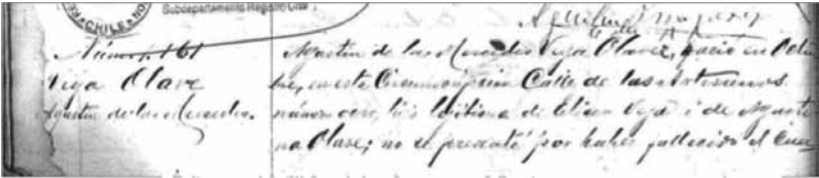 CHILE NO
Subdepartamento Registro Civil
Núm. 161
Vega Olave
Agustin de las Mercedes.
Agustin de las Mercedes Vega Olave, nació en Octu
bre, en esta Circunscripcion Calle de los Artesanos
número once, hijo lejítimo de Eliseo Vega i de Agusti
na Olave; no se presentó por haber fallecido el